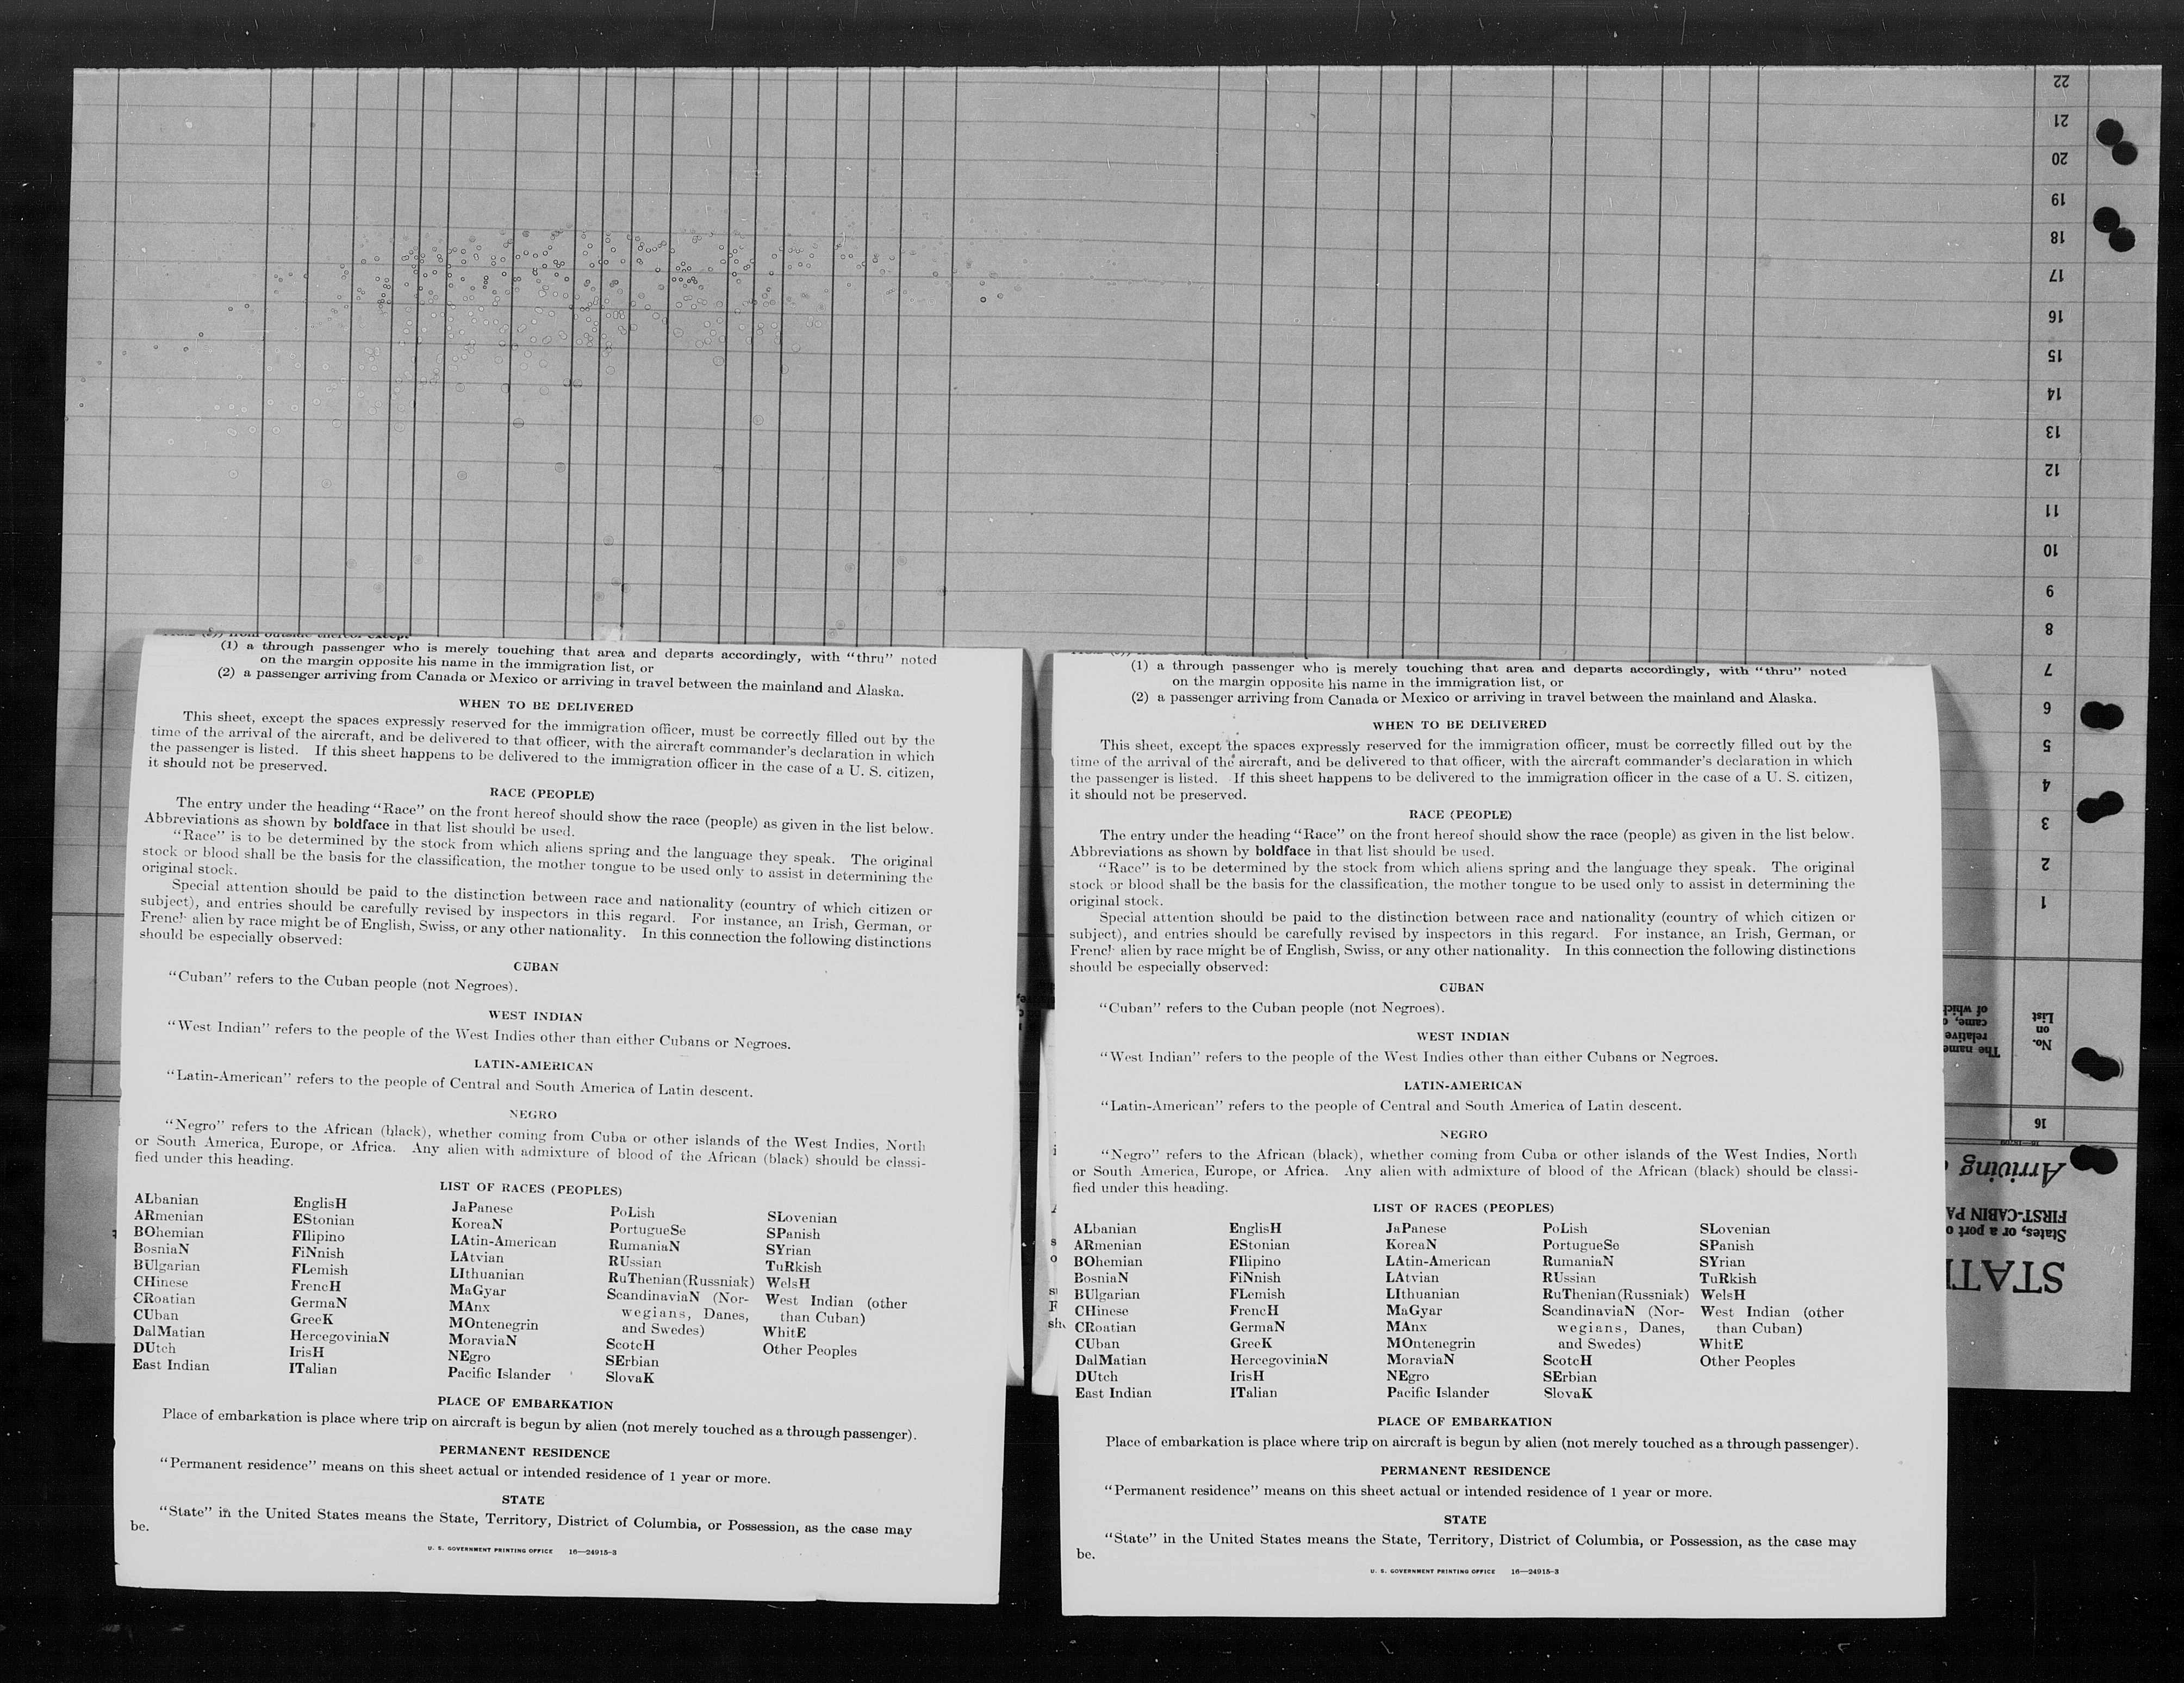 (1) a through passenger who is merely touching that area and departs accordingly, with "thru" noted
on the margin opposite his name in the immigration list, or
(2) a passenger arriving from Canada or Mexico or arriving in travel between the mainland and Alaska.
WHEN TO BE DELIVERED
This sheet, except the spaces expressly reserved for the immigration officer, must be correctly filled out by the
time of the arrival of the aircraft, and be delivered to that officer, with the aircraft commander's declaration in which
the passenger is listed. If this sheet happens to be delivered to the immigration officer in the case of a U. S. citizen,
it should not be preserved.
RACE (PEOPLE)
The entry under the heading "Race" on the front hereof should show the race (people) as given in the list below.
Abbreviations as shown by boldface in that list should be used.
"Race" is to be determined by the stock from which aliens spring and the language they speak. The original
stock or blood shall be the basis for the classification, the mother tongue to be used only to assist in determining the
original stock.
Special attention should be paid to the distinction between race and nationality (country of which citizen or
subject), and entries should be carefully revised by inspectors in this regard. For instance, an Irish, German, or
French alien by race might be of English, Swiss, or any other nationality. In this connection the following distinctions
should be especially observed:
CUBAN
"Cuban" refers to the Cuban people (not Negroes).
WEST INDIAN
"West Indian" refers to the people of the West Indies other than either Cubans or Negroes.
LATIN-AMERICAN
"Latin-American" refers to the people of Central and South America of Latin descent.
NEGRO
"Negro" refers to the African (black), whether coming from Cuba or other islands of the West Indies, North
or South America, Europe, or Africa. Any alien with admixture of blood of the African (black) should be classi-
fied under this heading.
LIST OF RACES (PEOPLES)
ALbanian
ARmenian
BOhemian
BosniaN
BUlgarian
CHinese
CRoatian
CUban
DalMatian
DUtch
East Indian
EnglisH
EStonian
FIlipino
FiNnish
FLemish
FrencH
GermaN
GreeK
HercegoviniaN
IrisH
ITalian
JaPanese
KoreaN
LAtin-American
LAtvian
LIthuanian
MaGyar
MAnx
MOntenegrin
MoraviaN
NEgro
Pacific Islander
PoLish
PortugueSe
RumaniaN
RUssian
RuThenian (Russniak)
ScandinaviaN (Nor-
wegians, Danes,
and Swedes)
ScotcH
SErbian
SlovaK
SLovenian
SPanish
SYrian
TuRkish
WelsH
West Indian (other
than Cuban)
WhitE
Other Peoples
PLACE OF EMBARKATION
Place of embarkation is place where trip on aircraft is begun by alien (not merely touched as a through passenger).
PERMANENT RESIDENCE
"Permanent residence" means on this sheet actual or intended residence of 1 year or more.
STATE
"State" in the United States means the State, Territory, District of Columbia, or Possession, as the case may
be.
U. S. GOVERNMENT PRINTING OFFICE 16—24915-3
(1) a through passenger who is merely touching that area and departs accordingly, with "thru" noted
on the margin opposite his name in the immigration list, or
(2) a passenger arriving from Canada or Mexico or arriving in travel between the mainland and Alaska.
WHEN TO BE DELIVERED
This sheet, except the spaces expressly reserved for the immigration officer, must be correctly filled out by the
time of the arrival of the aircraft, and be delivered to that officer, with the aircraft commander's declaration in which
the passenger is listed. If this sheet happens to be delivered to the immigration officer in the case of a U. S. citizen,
it should not be preserved.
RACE (PEOPLE)
The entry under the heading "Race" on the front hereof should show the race (people) as given in the list below.
Abbreviations as shown by boldface in that list should be used.
"Race" is to be determined by the stock from which aliens spring and the language they speak. The original
stock or blood shall be the basis for the classification, the mother tongue to be used only to assist in determining the
original stock.
Special attention should be paid to the distinction between race and nationality (country of which citizen or
subject), and entries should be carefully revised by inspectors in this regard. For instance, an Irish, German, or
French alien by race might be of English, Swiss, or any other nationality. In this connection the following distinctions
should be especially observed:
CUBAN
"Cuban" refers to the Cuban people (not Negroes).
WEST INDIAN
"West Indian" refers to the people of the West Indies other than either Cubans or Negroes.
LATIN-AMERICAN
"Latin-American" refers to the people of Central and South America of Latin descent.
NEGRO
"Negro" refers to the African (black), whether coming from Cuba or other islands of the West Indies, North
or South America, Europe, or Africa. Any alien with admixture of blood of the African (black) should be classi-
fied under this heading.
LIST OF RACES (PEOPLES)
ALbanian
ARmenian
BOhemian
BosniaN
BUlgarian
CHinese
CRoatian
CUban
DalMatian
DUtch
East Indian
EnglisH
EStonian
FIlipino
FiNnish
FLemish
FrencH
GermaN
GreeK
HercegoviniaN
IrisH
ITalian
JaPanese
KoreaN
LAtin-American
LAtvian
LIthuanian
MaGyar
MAnx
MOntenegrin
MoraviaN
NEgro
Pacific Islander
PoLish
PortugueSe
RumaniaN
RUssian
RuThenian (Russniak)
ScandinaviaN (Nor-
wegians, Danes,
and Swedes)
ScotcH
SErbian
SlovaK
SLovenian
SPanish
SYrian
TuRkish
WelsH
West Indian (other
than Cuban)
WhitE
Other Peoples
PLACE OF EMBARKATION
Place of embarkation is place where trip on aircraft is begun by alien (not merely touched as a through passenger).
PERMANENT RESIDENCE
"Permanent residence" means on this sheet actual or intended residence of 1 year or more.
STATE
"State" in the United States means the State, Territory, District of Columbia, or Possession, as the case may
be.
U. S. GOVERNMENT PRINTING OFFICE 16—24915-3
States, or a port
FIRST-CABIN
Arriving
16
No.
on
List
The name
relative
came,
of
1
2
3
4
5
6
7
8
9
10
11
12
13
14
15
16
17
18
19
20
21
22